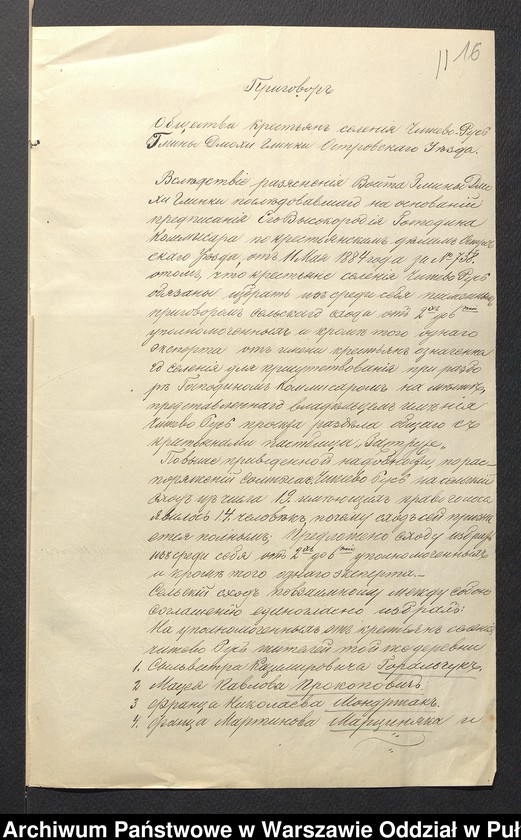 11 16
Приговоръ
Общества крестьянъ селенія Чижево-Русь
Гмины Дмохи Глинки Островскаго Уѣзда.
Вслѣдствіе разясненія Войта Гмины Дмо
хи Глинки послѣдовавшаго на основаніи
предписанія Его Высокородія Господина
Коммисара по крестьянскимъ дѣламъ Остров
скаго Уѣзда, отъ 11 Мая 1884 года за №
отомъ, что крестьяне селенія Чижево Русь
обязаны избрать изъ среди себя
приговоромъ сельскаго схода отъ 2хъ до 6ти
уполномоченныхъ и кромѣ того однаго
эксперта отъ имени крестьянъ означенна
го селенія для присутствованія при разбо
рѣ Господиномъ Коммисаромъ на мѣстѣ,
представленнаго владѣльцемъ имѣнія
Чижево Русь проэкта раздѣла общаго съ
крестьянами пастбища
Повыше приведенной надобности, по рас
поряженію солтыса Чижево Русь на сельскій
сходъ изъ числа 19. имѣющихъ право голоса
явилось 14. человѣкъ, почему сходъ сей призна
ется полнымъ; Предложено сходу избрать
изъ среди себя отъ 2хъ до 6ти уполномоченныхъ
и кромѣ того однаго эксперта.—
Сельскій сходъ повзаимному между собою
соглашенію единогласно избралъ:
На уполномоченныхъ отъ крестьянъ селенія
Чижево Русь жителей той же деревни
1. Сильвестра Казимировича
2 Мацея Павлова Прокоповичъ
3 Франца Николаева
4. Франца Мартинова Марциняка и
Archiwum Państwowe w Warszawie Oddział w Puł